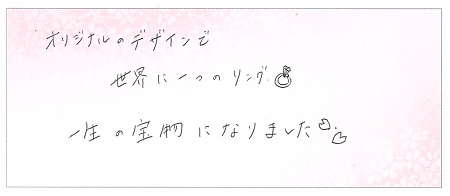 オリジナルのデザインで
世界に一つのリング
一生の宝物になりました